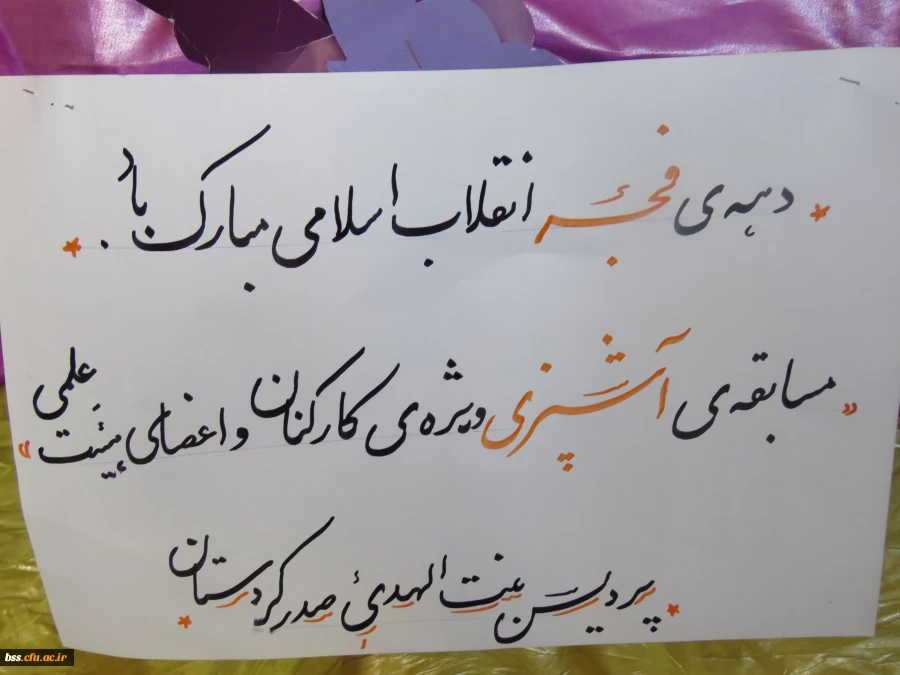 دهه‌ی فجر انقلاب اسلامی مبارک باد.
«مسابقه‌ی آشپزی ویژه‌ی کارکنان و اعضای هیئت علمی»
پردیس بنت الهدی صدر کردستان
bss.cfu.ac.ir